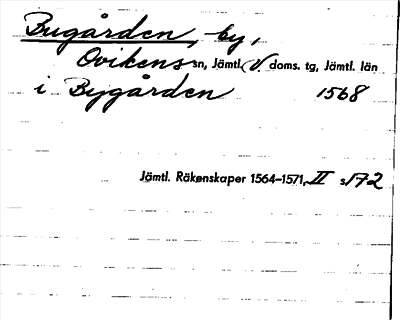 Bugården, by,
Ovikens sn, Jämtl. V. doms. tg, Jämtl. län
i Bygården 1568
Jämtl. Räkenskaper 1564–1571, II s. 172